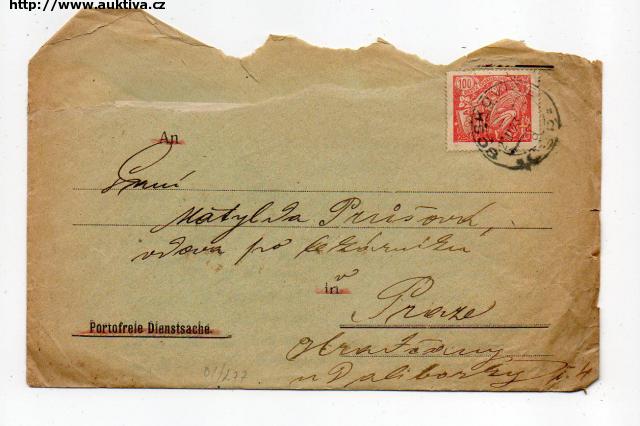 http://www.auktiva.cz
100
An
Paní
Matylda Průšová,
vdova po lékárníku
in v
Praze
Portofreie Dienstsache.
Hradčany
u Daliborky č. 4
01/277